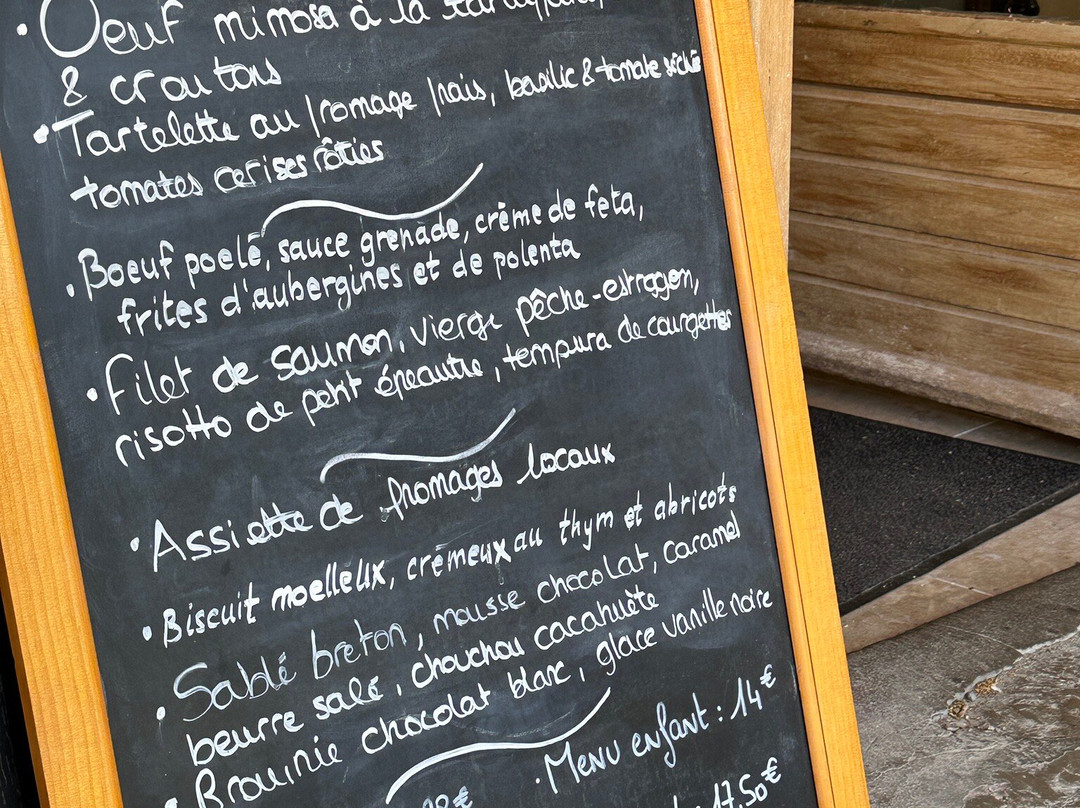 · Oeuf mimosa à la
& croutons
· Tartelette au fromage frais, basilic & tomate séchée
tomates cerises rôties
· Boeuf poelé, sauce grenade, crème de feta,
frites d'aubergines et de polenta
· Filet de saumon, vierge pêche-estragon,
risotto de petit épeautre, tempura de courgettes
· Assiette de fromages locaux
· Biscuit moelleux, crémeux au thym et abricots
· Sablé breton, mousse chocolat, caramel
beurre salé, chouchou cacahuète
· Brownie chocolat blanc, glace vanille noire
· Menu enfant : 14€
17,50€